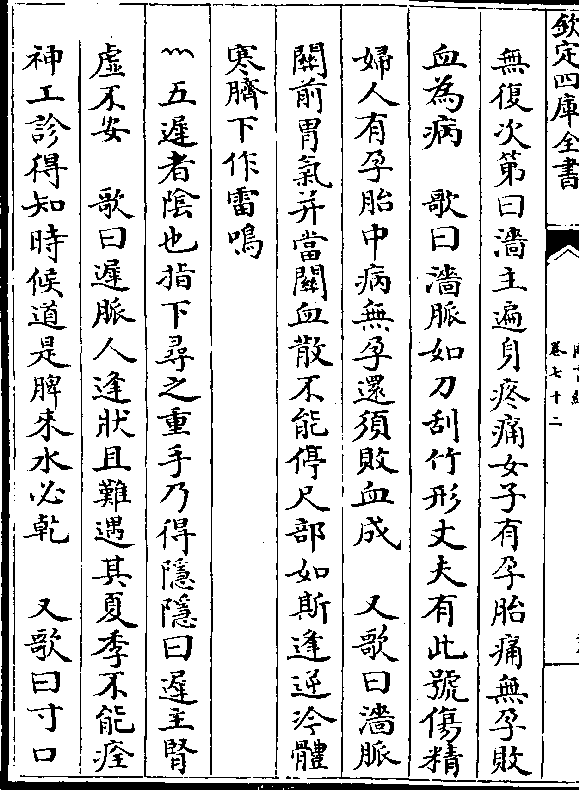 欽定四庫全書
卷七十二
無復次第曰濇主遍身疼痛女子有孕胎痛無孕敗
血為病　歌曰濇脈如刀刮竹形丈夫有此號傷精
婦人有孕胎中病無孕還須敗血成　又歌曰濇脈
關前胃氣并當關血散不能停尺部如斯逢逆冷體
寒臍下作雷鳴
灬五遲者陰也指下尋之重手乃得隱隱曰遲主腎
虛不安　歌曰遲脈人逢狀且難遇其夏季不能痊
神工診得知時候道是脾來水必乾　又歌曰寸口